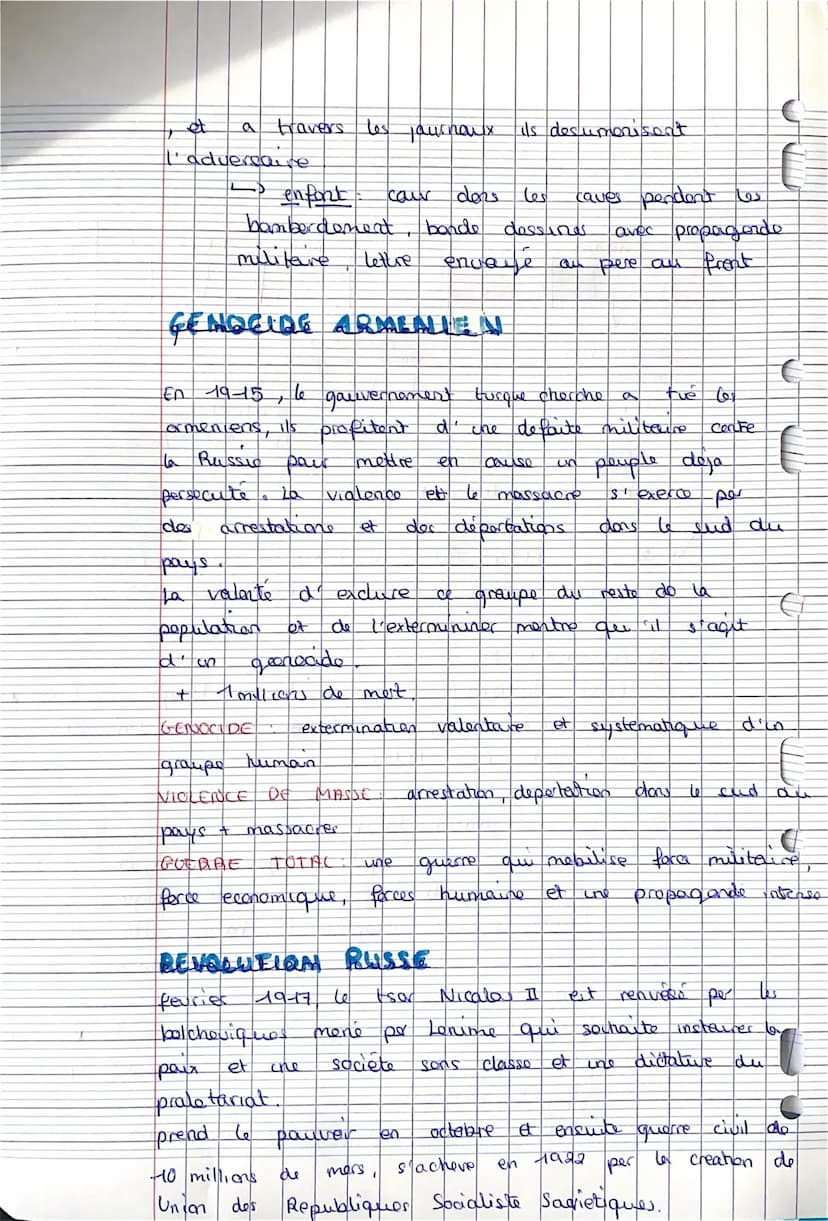 , et a travers les journaux ils desumonisent
l'adversaire
↳ enfant : cour dans les caves pendant les
bamberdement, bande dessines avec propagande
militaire, lettre envoyé au pere au front
GENOCIDE ARMENIEN
En 1915, le gouvernement turque cherche a tué les
armeniens, ils profitent d'une defaite militaire contre
la Russie pour mettre en cause un peuple déja
persecuté. La violence et le massacre s'exerce par
des arrestations et des déportations dans le sud du
pays.
La volonté d'exclure ce groupe du reste de la
population et de l'extermininer montre qu'il s'agit
d'un genocide.
+ 1 millions de mort.
GENOCIDE : extermination volontaire et systematique d'un
groupe humain
VIOLENCE DE MASSE : arrestation, deportation dans le sud du
pays + massacres
GUERRE TOTAL : une guerre qui mobilise force militaire,
force economique, forces humaine et une propagande intense
REVOLUTION RUSSE
fevrier 1917, le tsar Nicolas II est renversé par les
bolcheviques mené par Lenine qui souhaite instaurer la
paix et une société sans classe et une dictature du
proletariat.
prend le pouvoir en octobre et ensuite guerre civil de
10 millions de mors, s'acheve en 1922 par la creation de
Union des Republiques Socialiste Sovietiques.